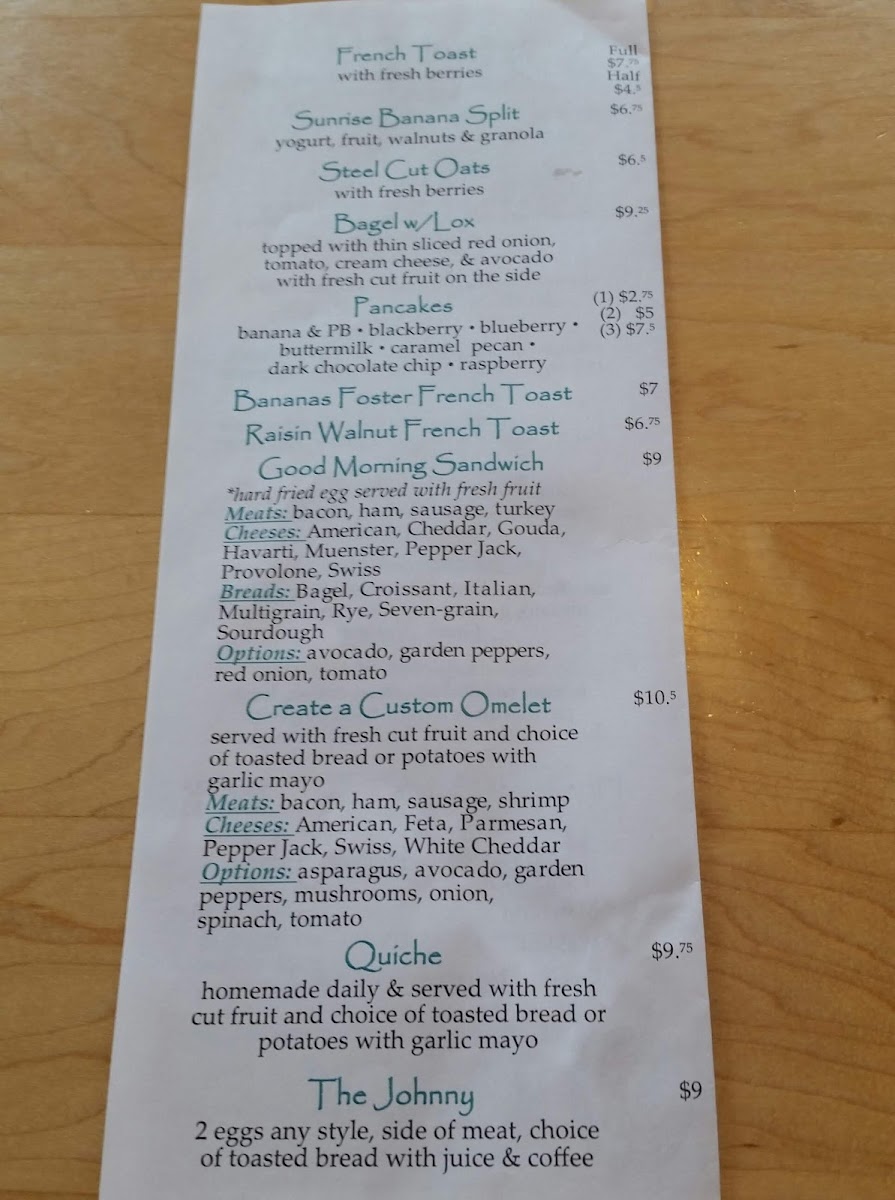 French Toast
with fresh berries
Full
$7.75
Half
$4.5
Sunrise Banana Split $6.75
yogurt, fruit, walnuts & granola
Steel Cut Oats $6.5
with fresh berries
Bagel w/Lox $9.25
topped with thin sliced red onion,
tomato, cream cheese, & avocado
with fresh cut fruit on the side
Pancakes
(1) $2.75
(2) $5
(3) $7.5
banana & PB • blackberry • blueberry •
buttermilk • caramel pecan •
dark chocolate chip • raspberry
Bananas Foster French Toast $7
Raisin Walnut French Toast $6.75
Good Morning Sandwich $9
*hard fried egg served with fresh fruit
Meats: bacon, ham, sausage, turkey
Cheeses: American, Cheddar, Gouda,
Havarti, Muenster, Pepper Jack,
Provolone, Swiss
Breads: Bagel, Croissant, Italian,
Multigrain, Rye, Seven-grain,
Sourdough
Options: avocado, garden peppers,
red onion, tomato
Create a Custom Omelet $10.5
served with fresh cut fruit and choice
of toasted bread or potatoes with
garlic mayo
Meats: bacon, ham, sausage, shrimp
Cheeses: American, Feta, Parmesan,
Pepper Jack, Swiss, White Cheddar
Options: asparagus, avocado, garden
peppers, mushrooms, onion,
spinach, tomato
Quiche $9.75
homemade daily & served with fresh
cut fruit and choice of toasted bread or
potatoes with garlic mayo
The Johnny $9
2 eggs any style, side of meat, choice
of toasted bread with juice & coffee